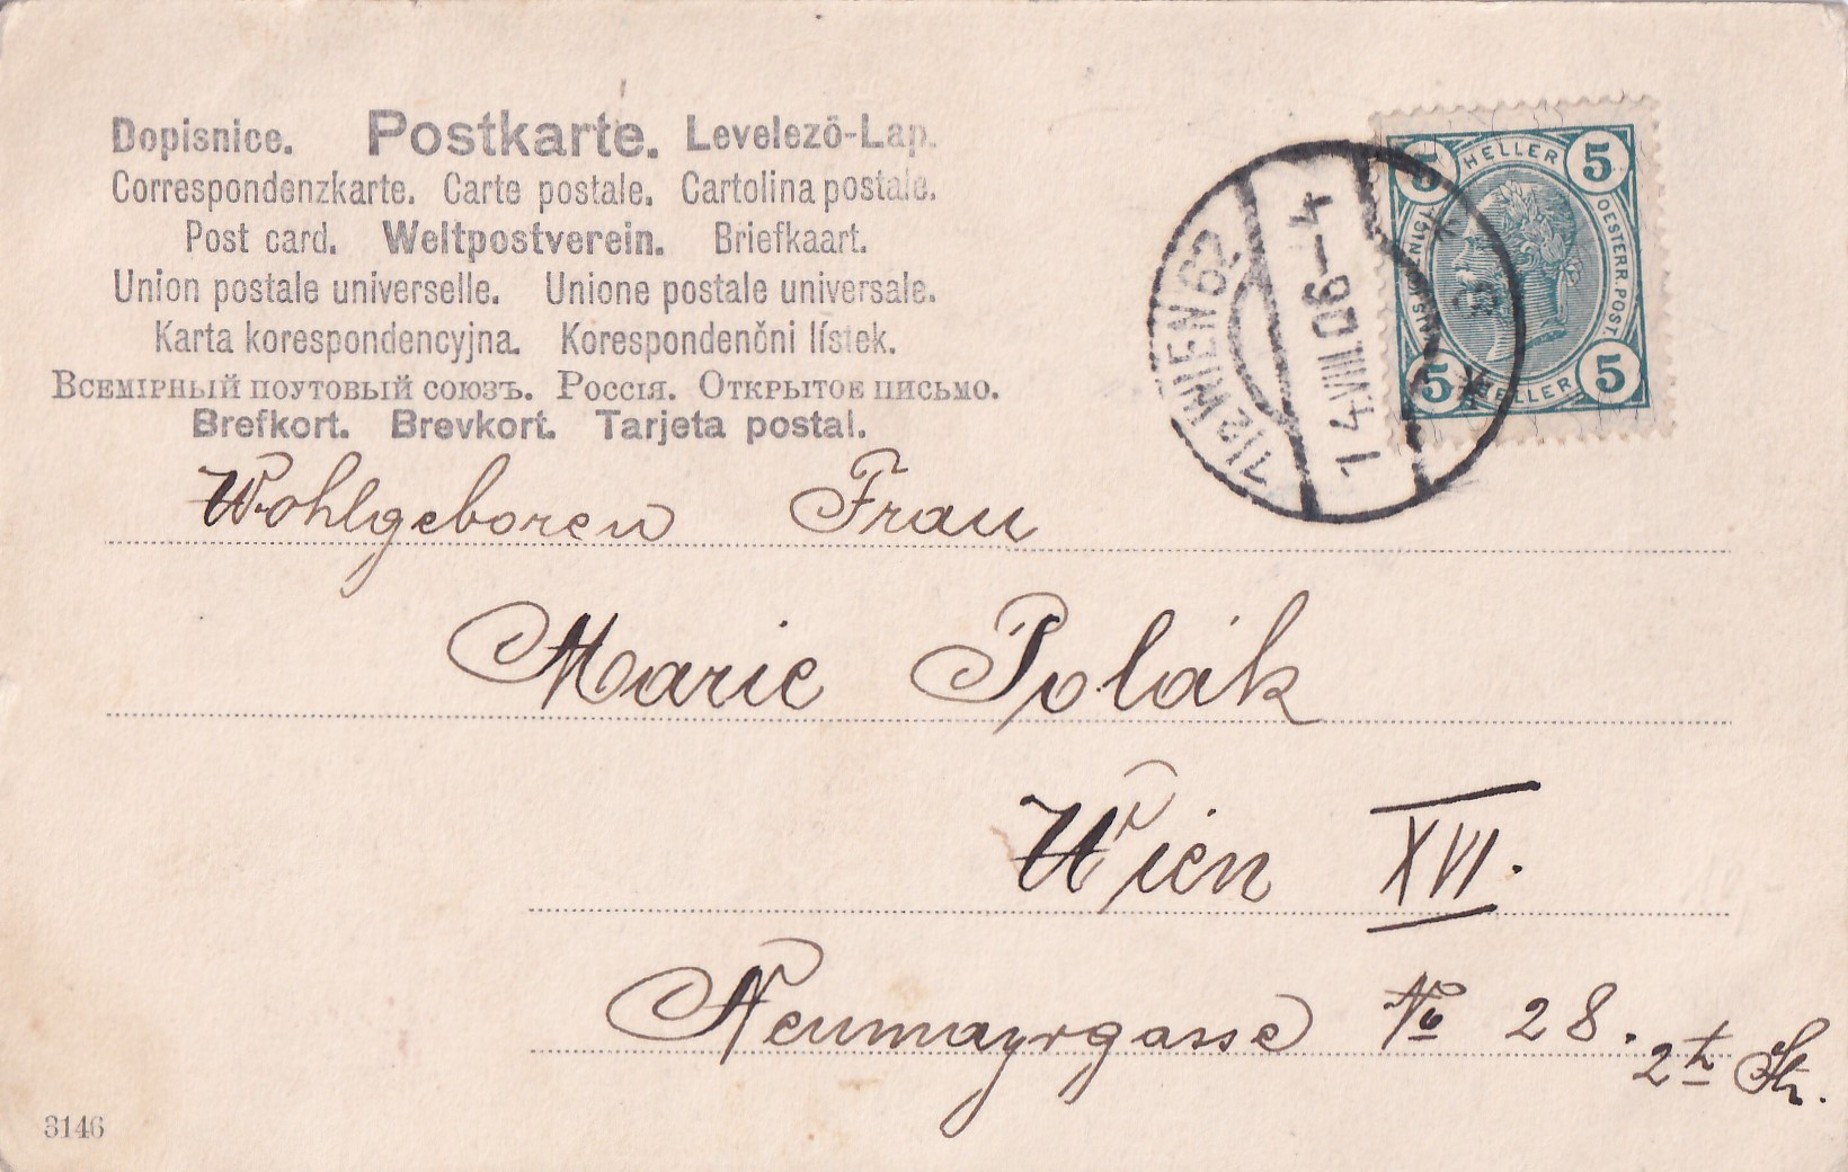 Dopisnice. Postkarte. Levelezö-Lap.
Correspondenzkarte. Carte postale. Cartolina postale.
Post card. Weltpostverein. Briefkaart.
Union postale universelle. Unione postale universale.
Karta korespondencyjna. Korespondenčni lístek.
Всемірный поутовый союзъ. Россія. Открытое письмо.
Brefkort. Brevkort. Tarjeta postal.
5 HELLER 5
OESTERR. POST.
5 HELLER 5
1/2 WIEN 62
14 VIII 06-4
Wohlgeboren Frau
Marie Polák
Wien XVI.
Neumayrgasse No 28.
2th St.
3146